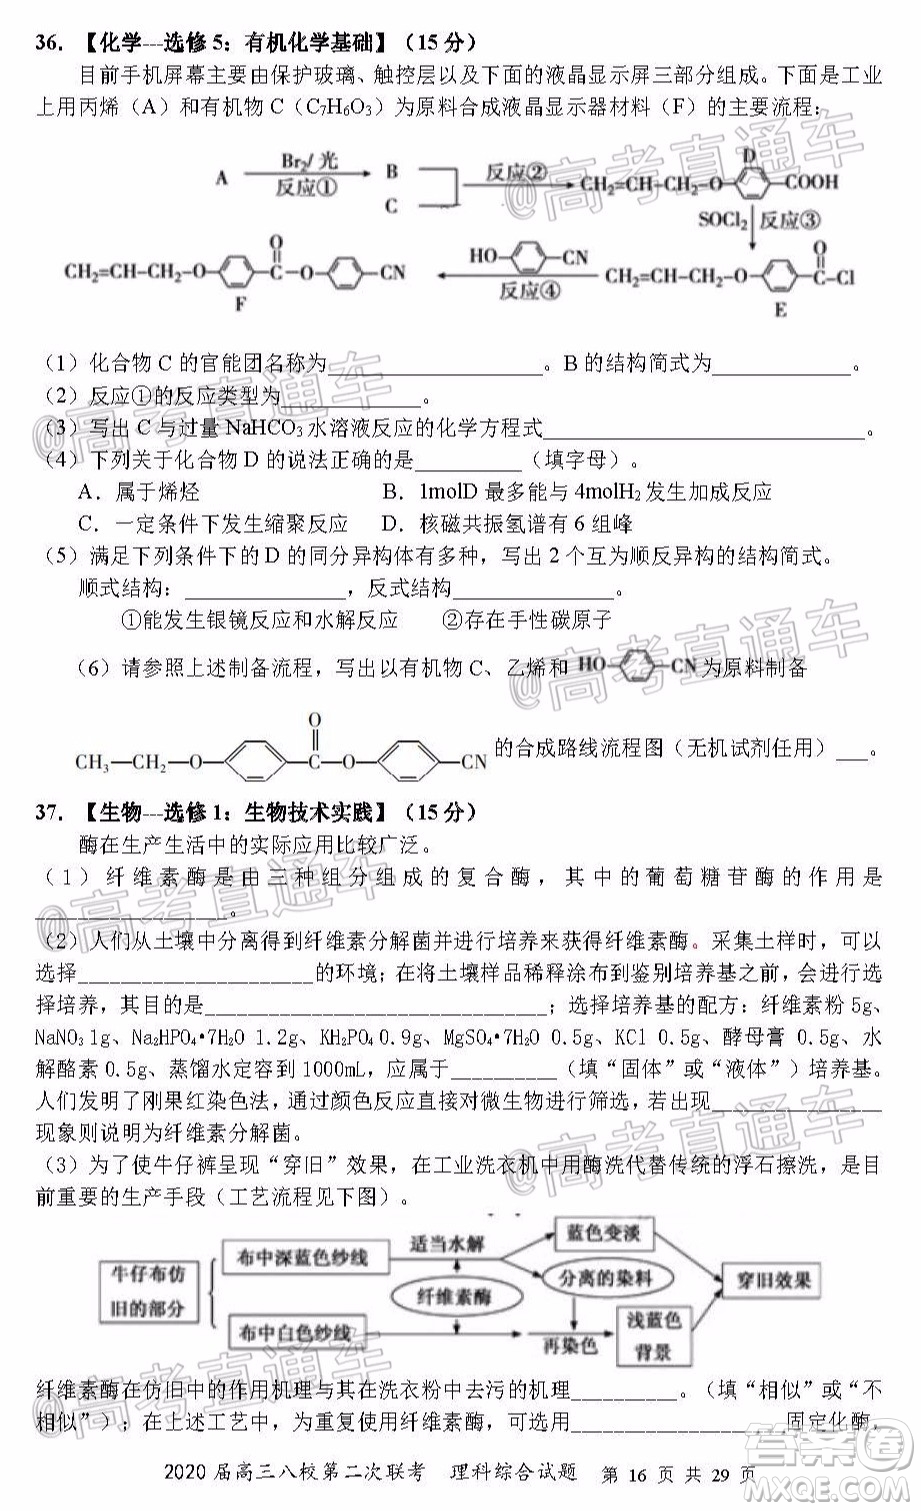 36．【化学---选修5：有机化学基础】（15分）
目前手机屏幕主要由保护玻璃、触控层以及下面的液晶显示屏三部分组成。下面是工业
上用丙烯（A）和有机物C（C₇H₆O₃）为原料合成液晶显示器材料（F）的主要流程：
A Br₂/光 反应① B C 反应② CH₂=CH-CH₂-O- D -COOH
SOCl₂ 反应③
CH₂=CH-CH₂-O- F O C-O- -CN HO- -CN 反应④ CH₂=CH-CH₂-O- E O C-Cl
（1）化合物C的官能团名称为____________________。B的结构简式为_____________。
（2）反应①的反应类型为_____________。
（3）写出C与过量NaHCO₃水溶液反应的化学方程式______________________________。
（4）下列关于化合物D的说法正确的是__________（填字母）。
A．属于烯烃 B．1molD最多能与4molH₂发生加成反应
C．一定条件下发生缩聚反应 D．核磁共振氢谱有6组峰
（5）满足下列条件下的D的同分异构体有多种，写出2个互为顺反异构的结构简式。
顺式结构：_______________，反式结构_______________。
①能发生银镜反应和水解反应 ②存在手性碳原子
（6）请参照上述制备流程，写出以有机物C、乙烯和 HO- -CN 为原料制备
CH₃—CH₂—O— —C(=O)—O— —CN 的合成路线流程图（无机试剂任用）___。
37．【生物---选修1：生物技术实践】（15分）
酶在生产生活中的实际应用比较广泛。
（1）纤维素酶是由三种组分组成的复合酶，其中的葡萄糖苷酶的作用是
__________________。
（2）人们从土壤中分离得到纤维素分解菌并进行培养来获得纤维素酶。采集土样时，可以
选择______________________的环境；在将土壤样品稀释涂布到鉴别培养基之前，会进行选
择培养，其目的是________________________________；选择培养基的配方：纤维素粉5g、
NaNO₃ 1g、Na₂HPO₄•7H₂O 1.2g、KH₂PO₄ 0.9g、MgSO₄•7H₂O 0.5g、KCl 0.5g、酵母膏 0.5g、水
解酪素 0.5g、蒸馏水定容到 1000mL，应属于__________（填“固体”或“液体”）培养基。
人们发明了刚果红染色法，通过颜色反应直接对微生物进行筛选，若出现________________
现象则说明为纤维素分解菌。
（3）为了使牛仔裤呈现“穿旧”效果，在工业洗衣机中用酶洗代替传统的浮石擦洗，是目
前重要的生产手段（工艺流程见下图）。
牛仔布仿旧的部分 布中深蓝色纱线 适当水解 蓝色变淡
纤维素酶 分离的染料 穿旧效果
布中白色纱线 再染色 浅蓝色背景
纤维素酶在仿旧中的作用机理与其在洗衣粉中去污的机理__________。（填“相似”或“不
相似”）；在上述工艺中，为重复使用纤维素酶，可选用____________________固定化酶，
2020届高三八校第二次联考 理科综合试题 第 16 页 共 29 页
@高考直通车
@高考直通车
@高考直通车
@高考直通车
@高考直通车
@高考直通车
@高考直通车
@高考直通车
答案圈
MXQE.COM